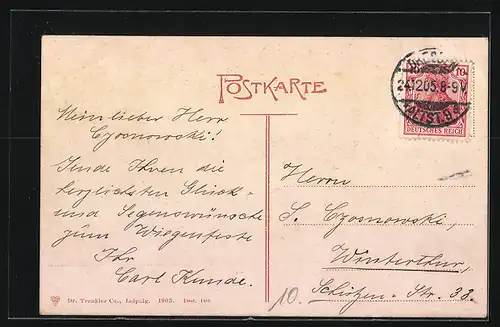 POSTKARTE
Mein lieber Herr
Czosnowski!
Sende Ihnen die
herzlichsten Glück-
und Segenswünsche
zum Wiegenfeste
Ihr
Carl Kunde.
10
DEUTSCHES REICH
24.12.05. 8-9V.
ALTST. 9
Herrn
S. Czosnowski,
Winterthur,
Schützen-Str. 33.
10.
Dr. Trenkler Co., Leipzig. 1905.